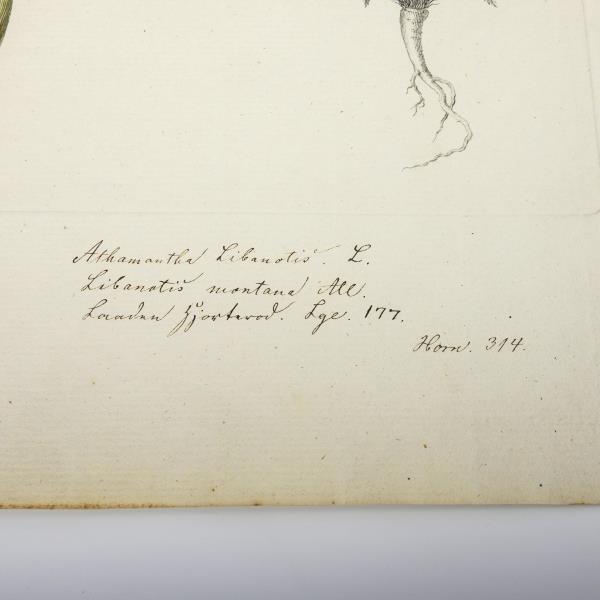 Athamantha Libanotis. L.
Libanotis montana All.
Laaden Hjorterod. Lge. 177.
Horn. 314.